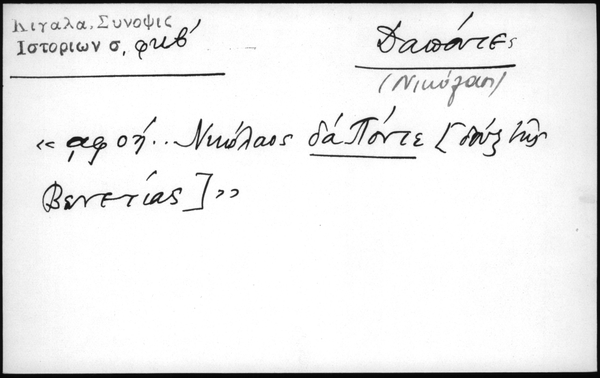 Κιγαλα, Συνοψις
Ιστοριων σ, φκβ'
Δαπόντες
(Νικόλαος)
« αφοή... Νικόλαος δά Πόντε [δούξ της
Βενετίας] »